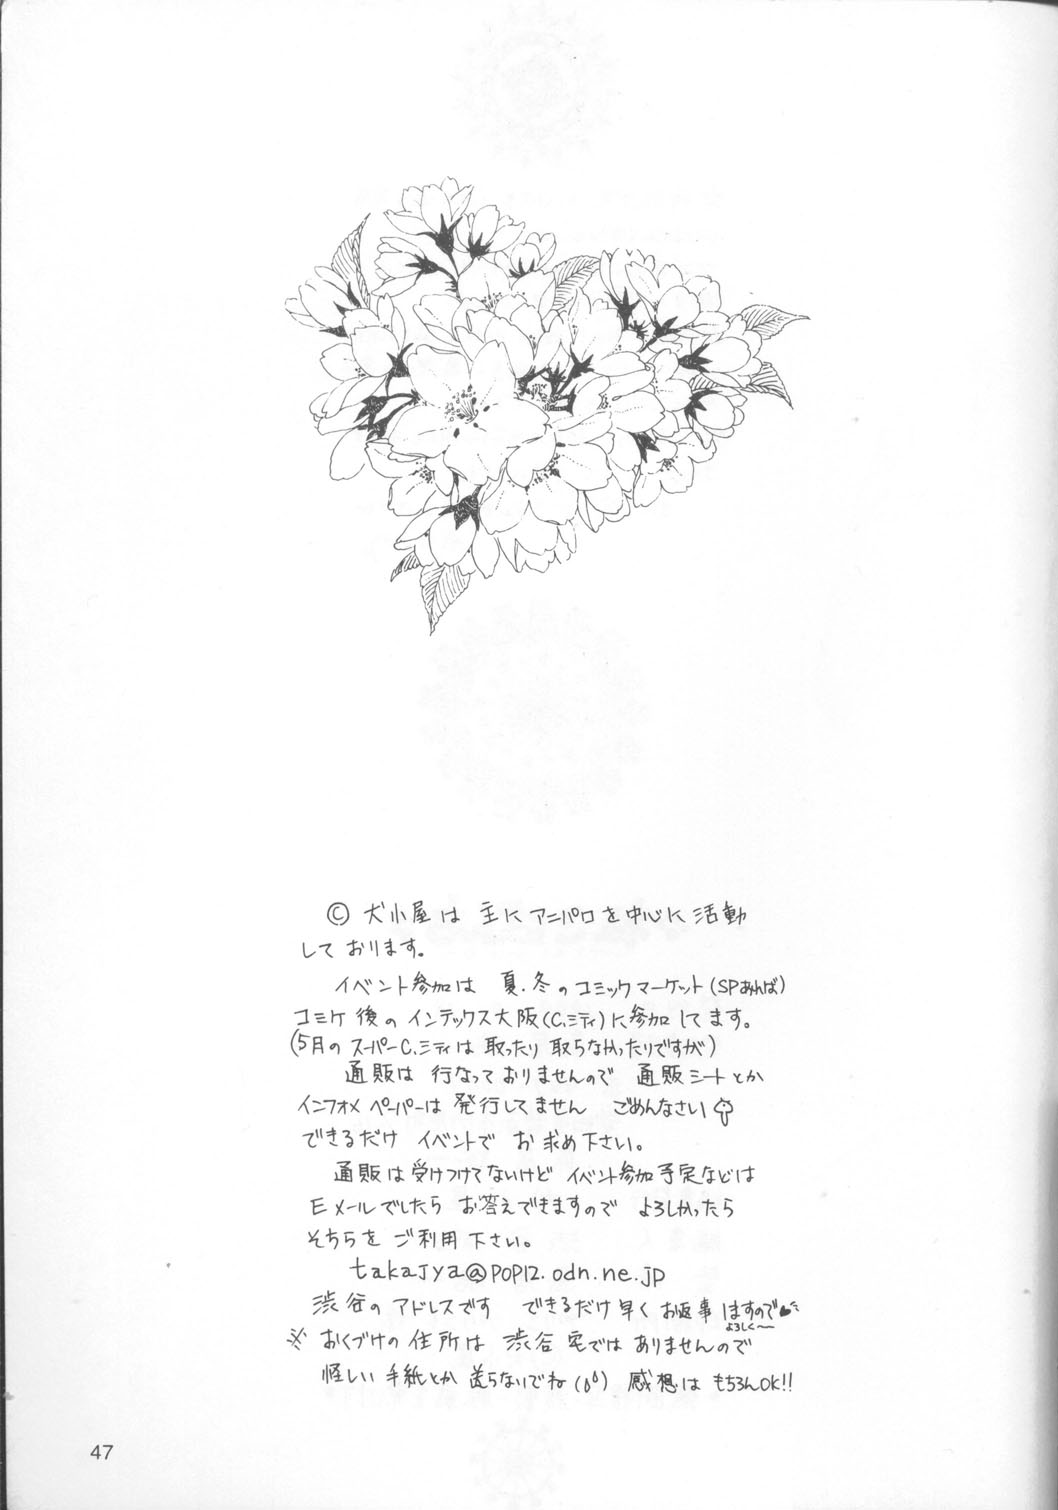 Ⓒ 犬小屋は 主に アニパロを中心に 活動
して おります。
イベント参加は 夏.冬のコミックマーケット(SPあれば)
コミケ後の インテックス大阪(C.シティ)に参加してます。
(5月の スーパーC.シティは 取ったり 取らなかったりですが)
通販は 行なって おりませんので 通販シートとか
インフォメ ペーパーは 発行してません ごめんなさい
できるだけ イベントで お求め下さい。
通販は受けつけてないけど イベント参加予定などは
Eメールでしたら お答えできますので よろしかったら
そちらを ご利用下さい。
takajya@POP12.odn.ne.jp
渋谷の アドレスです できるだけ早く お返事 はすので
よろしく〜
※ おくづけの住所は 渋谷宅では ありませんので
怪しい 手紙とか 送らないでね 感想は もちろんOK!!
47